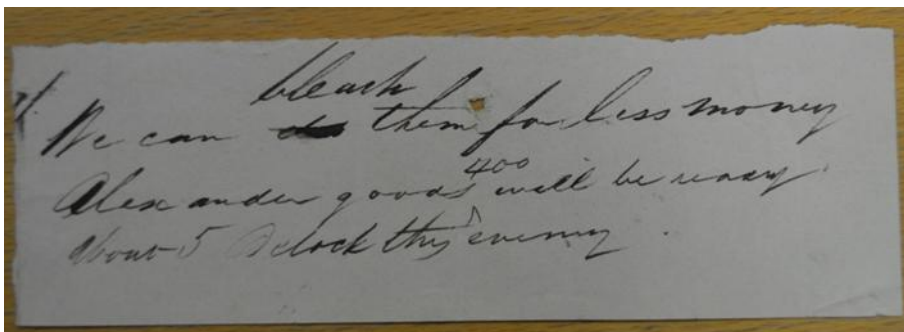 bleach
We can them for less money
400
Alexander goods will be ready
about 5 Oclock this evening.